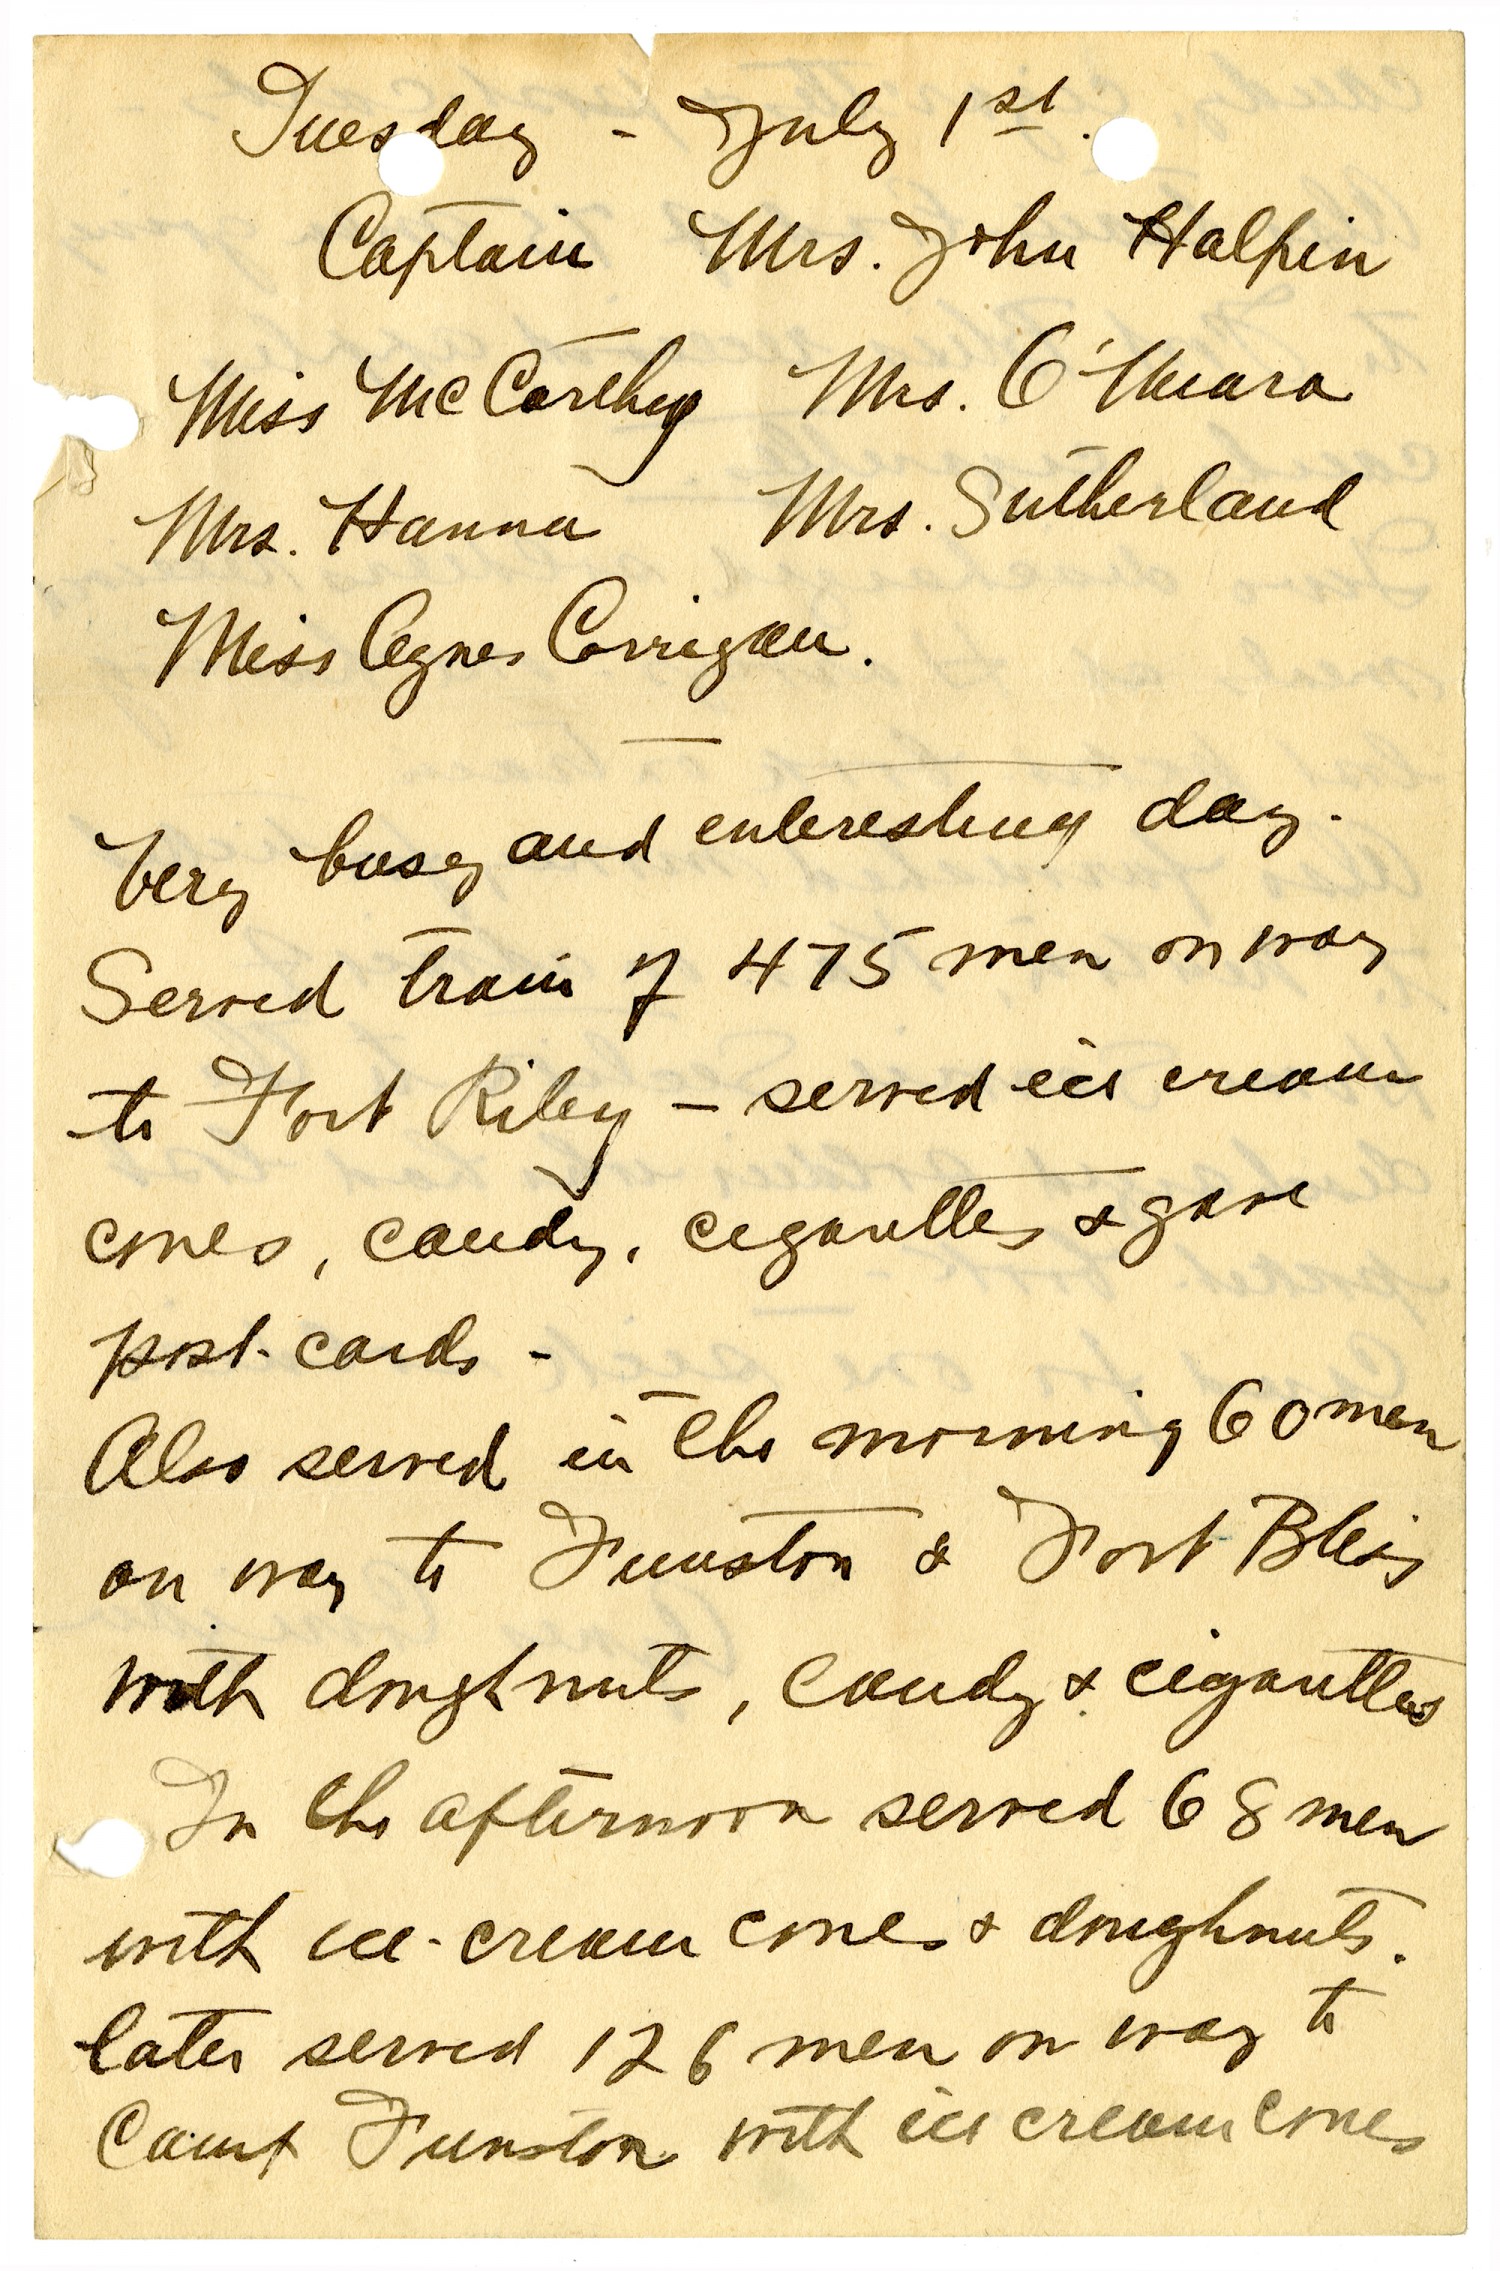 Tuesday - July 1st.
Captain Mrs. John Halpin
Miss McCarthy Mrs. O'Meara
Mrs. Hanna Mrs. Sutherland
Miss Agnes Corrigan.
Very busy and interesting day.
Served train of 475 men on way
to Fort Riley - served ice cream
cones, candy, cigarettes & gave
post-cards -
Also served in the morning 60 men
on way to Funston & Fort Bliss
with doughnuts, candy & cigarettes
In the afternoon served 68 men
with ice-cream cones & doughnuts.
Later served 126 men on way to
Camp Funston with ice cream cones